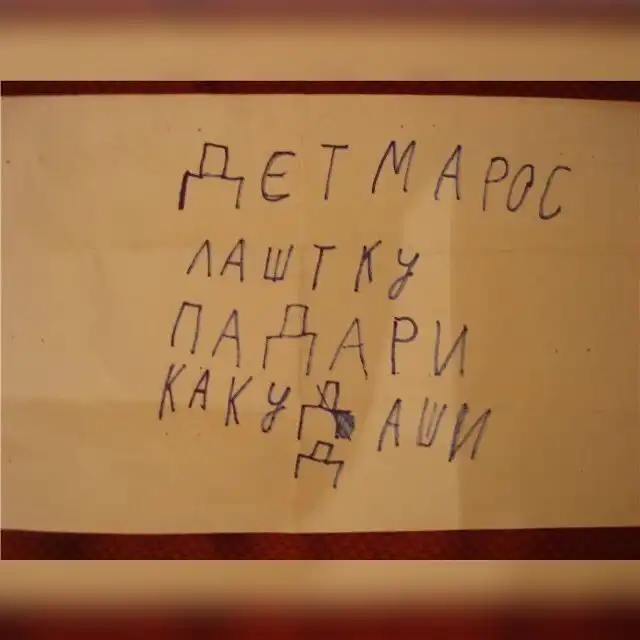 ДЕТМАРОС
ЛАШТКУ
ПАДАРИ
КАКУ ДАШИ
Д